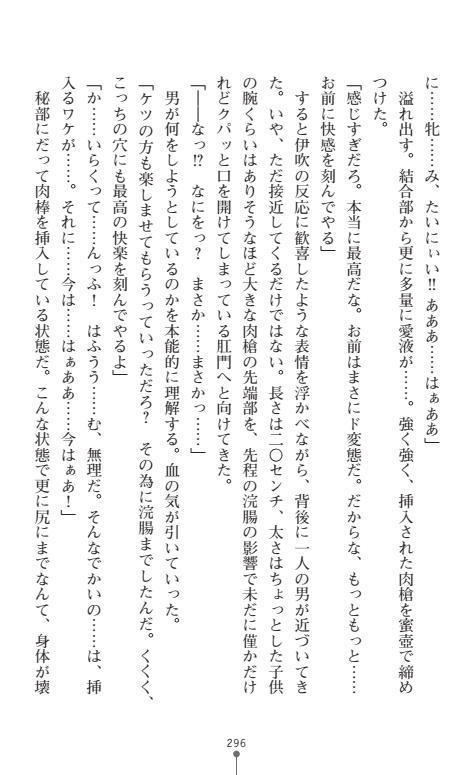 に……牝……み、たいにぃい!! あああ……はぁああ」
　溢れ出す。結合部から更に多量に愛液が……。強く強く、挿入された肉槍を蜜壺で締め
つけた。
「感じすぎだろ。本当に最高だな。お前はまさにド変態だ。だからな、もっともっと……
お前に快感を刻んでやる」
　すると伊吹の反応に歓喜したような表情を浮かべながら、背後に一人の男が近づいてき
た。いや、ただ接近してくるだけではない。長さは二〇センチ、太さはちょっとした子供
の腕くらいはありそうなほど大きな肉槍の先端部を、先程の浣腸の影響で未だに僅かだけ
れどクパッと口を開けてしまっている肛門へと向けてきた。
「――なっ!?　なにをっ？　まさか……まさかっ……」
　男が何をしようとしているのかを本能的に理解する。血の気が引いていった。
「ケツの方も楽しませてもらうっていっただろ？　その為に浣腸までしたんだ。くくく、
こっちの穴にも最高の快楽を刻んでやるよ」
「か……いらくって……んっふ！　はふうう……む、無理だ。そんなでかいの……は、挿
入るワケが……。それに……今は……はぁああ……今はぁあ！」
　秘部にだって肉棒を挿入している状態だ。こんな状態で更に尻にまでなんて、身体が壊
296